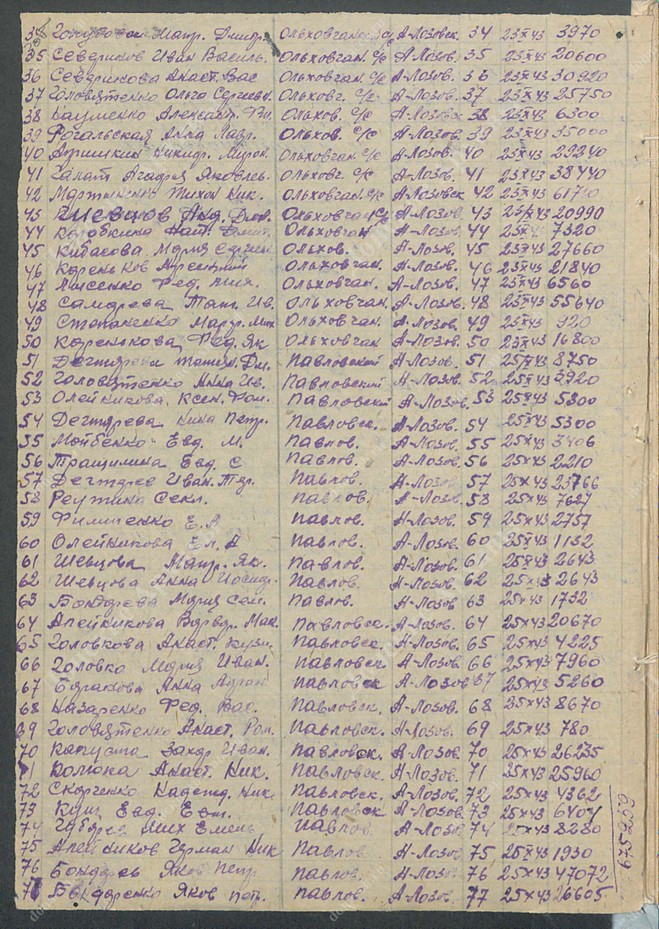 34 Мавр. Дмитр. Ольховчан. с/с А-Лозовск. 34 23 X 43 3970
35 Севриков Иван Василь. Ольховчан. с/с А-Лозов. 35 23 X 43 20600
36 Севрикова Анаст. Вас Ольховчан. с/с А-Лозов. 36 23 X 43 30920
37 Головятенко Ольга Сергеевн. Ольховч. с/с А-Лозов. 37 23 X 43 25750
38 Науменко Александр Ольхов. с/с А-Лозов. 38 23 X 43 6300
39 Рогальская Анна Мавр. Ольхов. с/с А-Лозов. 39 23 X 43 35000
40 Никифр. Мирон. Ольховчан. с/с А-Лозов. 40 23 X 43 29240
41 Галат Агафья Яковлев. Ольховч. с/с А-Лозов. 41 23 X 43 38440
42 Мартыненко Тихон Ник. Ольховчан. с/с А-Лозовск 42 23 X 43 61710
43 Шевцов Анд. Ольховчан с/с А-Лозов. 43 23 X 43 20990
44 Коробкина Дмит. Ольховчан А-Лозов. 44 23 X 43 7320
45 Кибасова Мария Ольхов. А-Лозов. 45 23 X 43 27660
46 Кореньков Арсентий Ольховчан. А-Лозов. 46 23 X 43 21840
47 Лысенко Фед. Мих. Ольховчан. А-Лозов. 47 23 X 43 6560
48 Самарева Тат. Ив. Ольховчан. А-Лозов. 48 23 X 43 55640
49 Степаненко Марф. Мих Ольховчан А-Лозов. 49 23 X 43 920
50 Коренькова Фед. Як Ольховчан А-Лозов. 50 23 X 43 16800
51 Дегтярева Татьян. Дм. Павловский А-Лозов. 51 25 X 43 8750
52 Головятенко Анна Ив. Павловский А-Лозов. 52 25 X 43 3920
53 Олейникова, Ксен. Павловский А-Лозов. 53 25 X 43 5800
54 Дегтярева Нина Петр. Павловск. А-Лозов. 54 25 X 43 5300
55 Мойбенко Евд. М Павлов. А-Лозов. 55 25 X 43 3406
56 Тращилина Евд. С Павлов. А-Лозов. 56 25 X 43 2210
57 Дегтярев Иван. Павлов. А-Лозов. 57 25 X 43 23766
58 Реутина Секл. Павлов. А-Лозов. 58 25 X 43 7627
59 Филипенко Е. А Павлов. А-Лозов. 59 25 X 43 2757
60 Олейникова Ел. А Павлов. А-Лозов. 60 25 X 43 1132
61 Шевцова Матр. Як. Павлов. А-Лозов. 61 25 X 43 2643
62 Шевцова Анна Павлов. А-Лозов. 62 25 X 43 2643
63 Бондарева Мария Сем. Павлов. А-Лозов 63 25 X 43 1732
64 Алейникова Варвар. Мак. Павловск. А-Лозов. 64 25 X 43 20670
65 Головкова Анаст. Кузм. Павловск. А-Лозов. 65 25 X 43 4225
66 Головко Мария Иван. Павловск А-Лозов. 66 25 X 43 7960
67 Анна Павловск А-Лозов 67 25 X 43 5260
68 Назаренко Фед. Вас. Павловск. А-Лозов. 68 25 X 43 8670
69 Головятенко Анаст. Ром. Павловск. А-Лозов. 69 25 X 43 780
70 Капуста Захар Иван. Павловск. А-Лозов. 70 25 X 43 26235
71 Анаст. Ник. Павловск. А-Лозов. 71 25 X 43 25960
72 Скорченко Надежд. Ник Павловск. А-Лозов. 72 25 X 43 4362
73 Кущ Евд. Евт. Павловск А-Лозов. 73 25 X 43 6404
74 Губарев Мих Емель Павлов А-Лозов 74 25 X 43 8280
75 Алейников Гурман Ник Павлов. А-Лозов. 75 25 X 43 1930
76 Бондарев Яков Петр Павлов. А-Лозов. 76 25 X 43 47072
77 Бондаренко Яков Петр. Павлов. А-Лозов. 77 25 X 43 26605